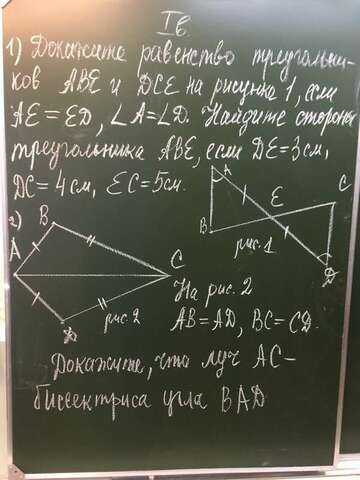 I в.
1) Докажите равенство треугольни-
ков ABE и DCE на рисунке 1, если
AE = ED, ∠A = ∠D. Найдите стороны
треугольника ABE, если DE = 3 см,
DC = 4 см, EC = 5 см.
A
E
C
B
D
рис. 1
2)
B
A
C
D
рис. 2
На рис. 2
AB = AD, BC = CD.
Докажите, что луч AC –
биссектриса угла BAD